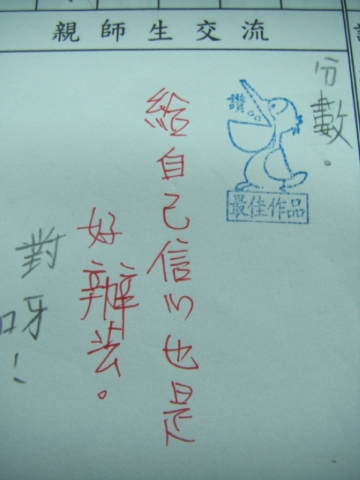 親師生交流
分數。
讚
最佳作品
給自己信心也是
好辦法。
對呀！